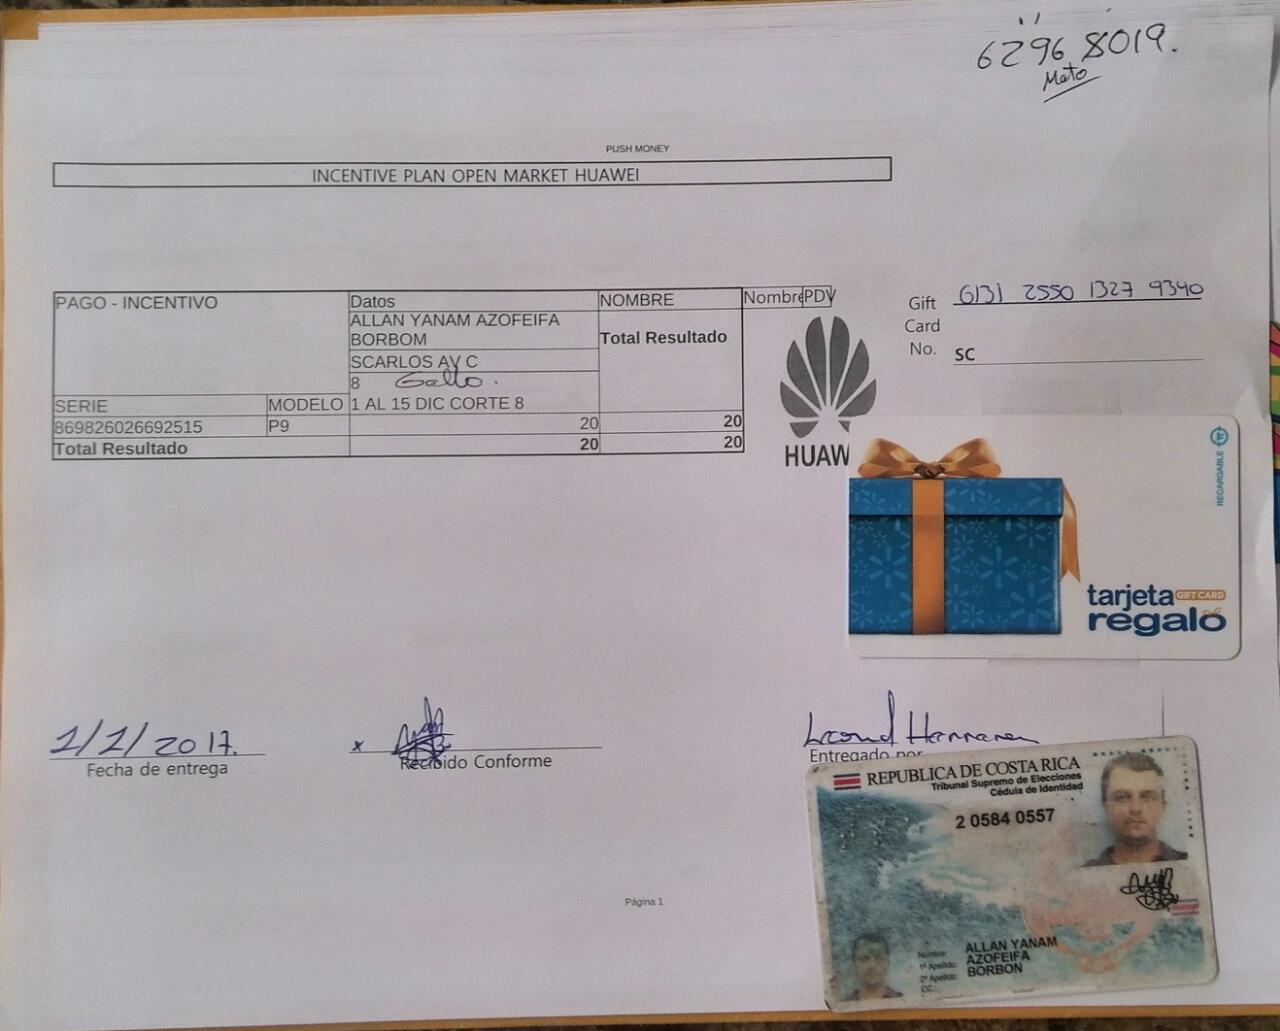 6296 8019.
Mato
PUSH MONEY
INCENTIVE PLAN OPEN MARKET HUAWEI
PAGO - INCENTIVO Datos NOMBRE Nombre PDV
ALLAN YANAM AZOFEIFA
BORBOM
Total Resultado
SCARLOS AV C
8 Gallo.
SERIE MODELO 1 AL 15 DIC CORTE 8
869826026692515 P9 20 20
Total Resultado 20 20
HUAW
Gift 6131 2550 1327 9340
Card
No. SC
RECARGABLE
tarjeta GIFT CARD
regalo
1/1/2017.
Fecha de entrega
x
Recibido Conforme
Entregado por
REPUBLICA DE COSTA RICA
Tribunal Supremo de Elecciones
Cédula de Identidad
2 0584 0557
Nombre: ALLAN YANAM
1° Apellido: AZOFEIFA
2° Apellido: BORBON
CC:
Página 1